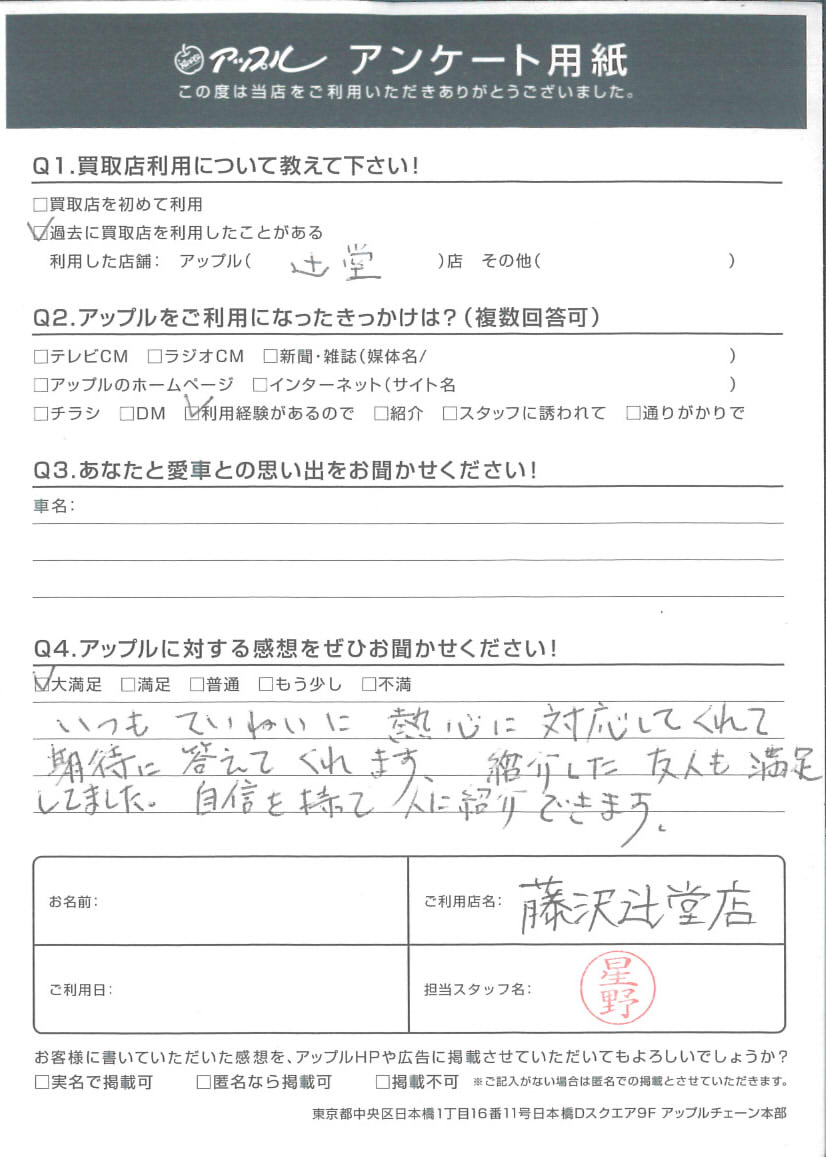 アップル アンケート用紙
この度は当店をご利用いただきありがとうございました。
Q1.買取店利用について教えて下さい!
□買取店を初めて利用
☑過去に買取店を利用したことがある
利用した店舗: アップル( 辻堂 )店 その他( )
Q2.アップルをご利用になったきっかけは?(複数回答可)
□テレビCM □ラジオCM □新聞・雑誌(媒体名/ )
□アップルのホームページ □インターネット(サイト名 )
□チラシ □DM ☑利用経験があるので □紹介 □スタッフに誘われて □通りがかりで
Q3.あなたと愛車との思い出をお聞かせください!
車名:
Q4.アップルに対する感想をぜひお聞かせください!
☑大満足 □満足 □普通 □もう少し □不満
いつも ていねいに 熱心に 対応してくれて
期待に 答えて くれます、 紹介した 友人も 満足
してました。 自信を 持って 人に紹介 できます。
お名前:
ご利用店名: 藤沢辻堂店
ご利用日:
担当スタッフ名: 星野
お客様に書いていただいた感想を、アップルHPや広告に掲載させていただいてもよろしいでしょうか?
□実名で掲載可 □匿名なら掲載可 □掲載不可 ※ご記入がない場合は匿名での掲載とさせていただきます。
東京都中央区日本橋1丁目16番11号日本橋Dスクエア9F アップルチェーン本部